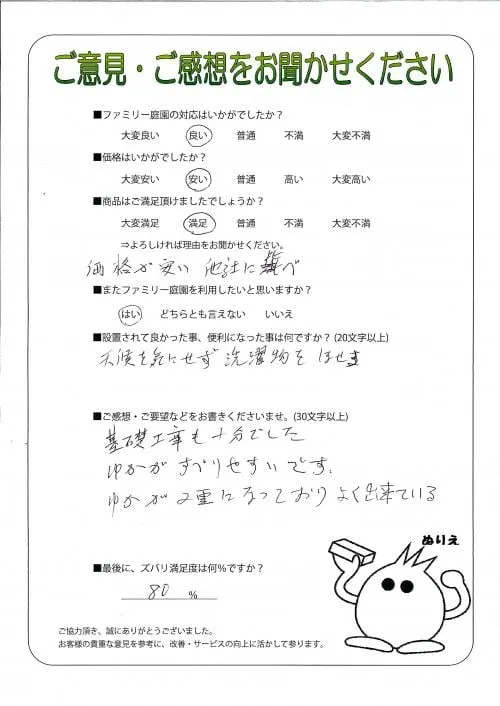 ご意見・ご感想をお聞かせください
■ファミリー庭園の対応はいかがでしたか？
大変良い 良い 普通 不満 大変不満
■価格はいかがでしたか？
大変安い 安い 普通 高い 大変高い
■商品はご満足頂けましたでしょうか？
大変満足 満足 普通 不満 大変不満
⇒よろしければ理由をお聞かせください。
価格が安い 他社に比べ
■またファミリー庭園を利用したいと思いますか？
はい どちらとも言えない いいえ
■設置されて良かった事、便利になった事は何ですか？(20文字以上)
天候を気にせず 洗濯物を ほせます
■ご感想・ご要望などをお書きくださいませ。(30文字以上)
基礎工事も十分でした
ゆかが すべりやすいです.
ゆかが2重になっており よく出来ている
ぬりえ
■最後に、ズバリ満足度は何%ですか？
80 %
ご協力頂き、誠にありがとうございました。
お客様の貴重な意見を参考に、改善・サービスの向上に活かして参ります。